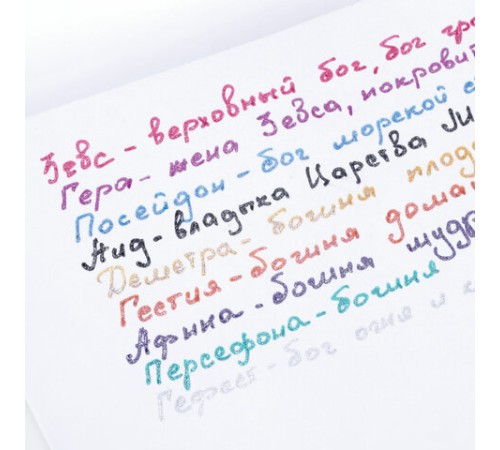 Зевс - верховный бог, бог гро
Гера - жена Зевса, покрови
Посейдон - бог морской с
Аид - владыка Царства
Деметра - богиня плодо
Гестия - богиня дома
Афина - богиня мудр
Персефона - богиня
Гефест - бог огня и к